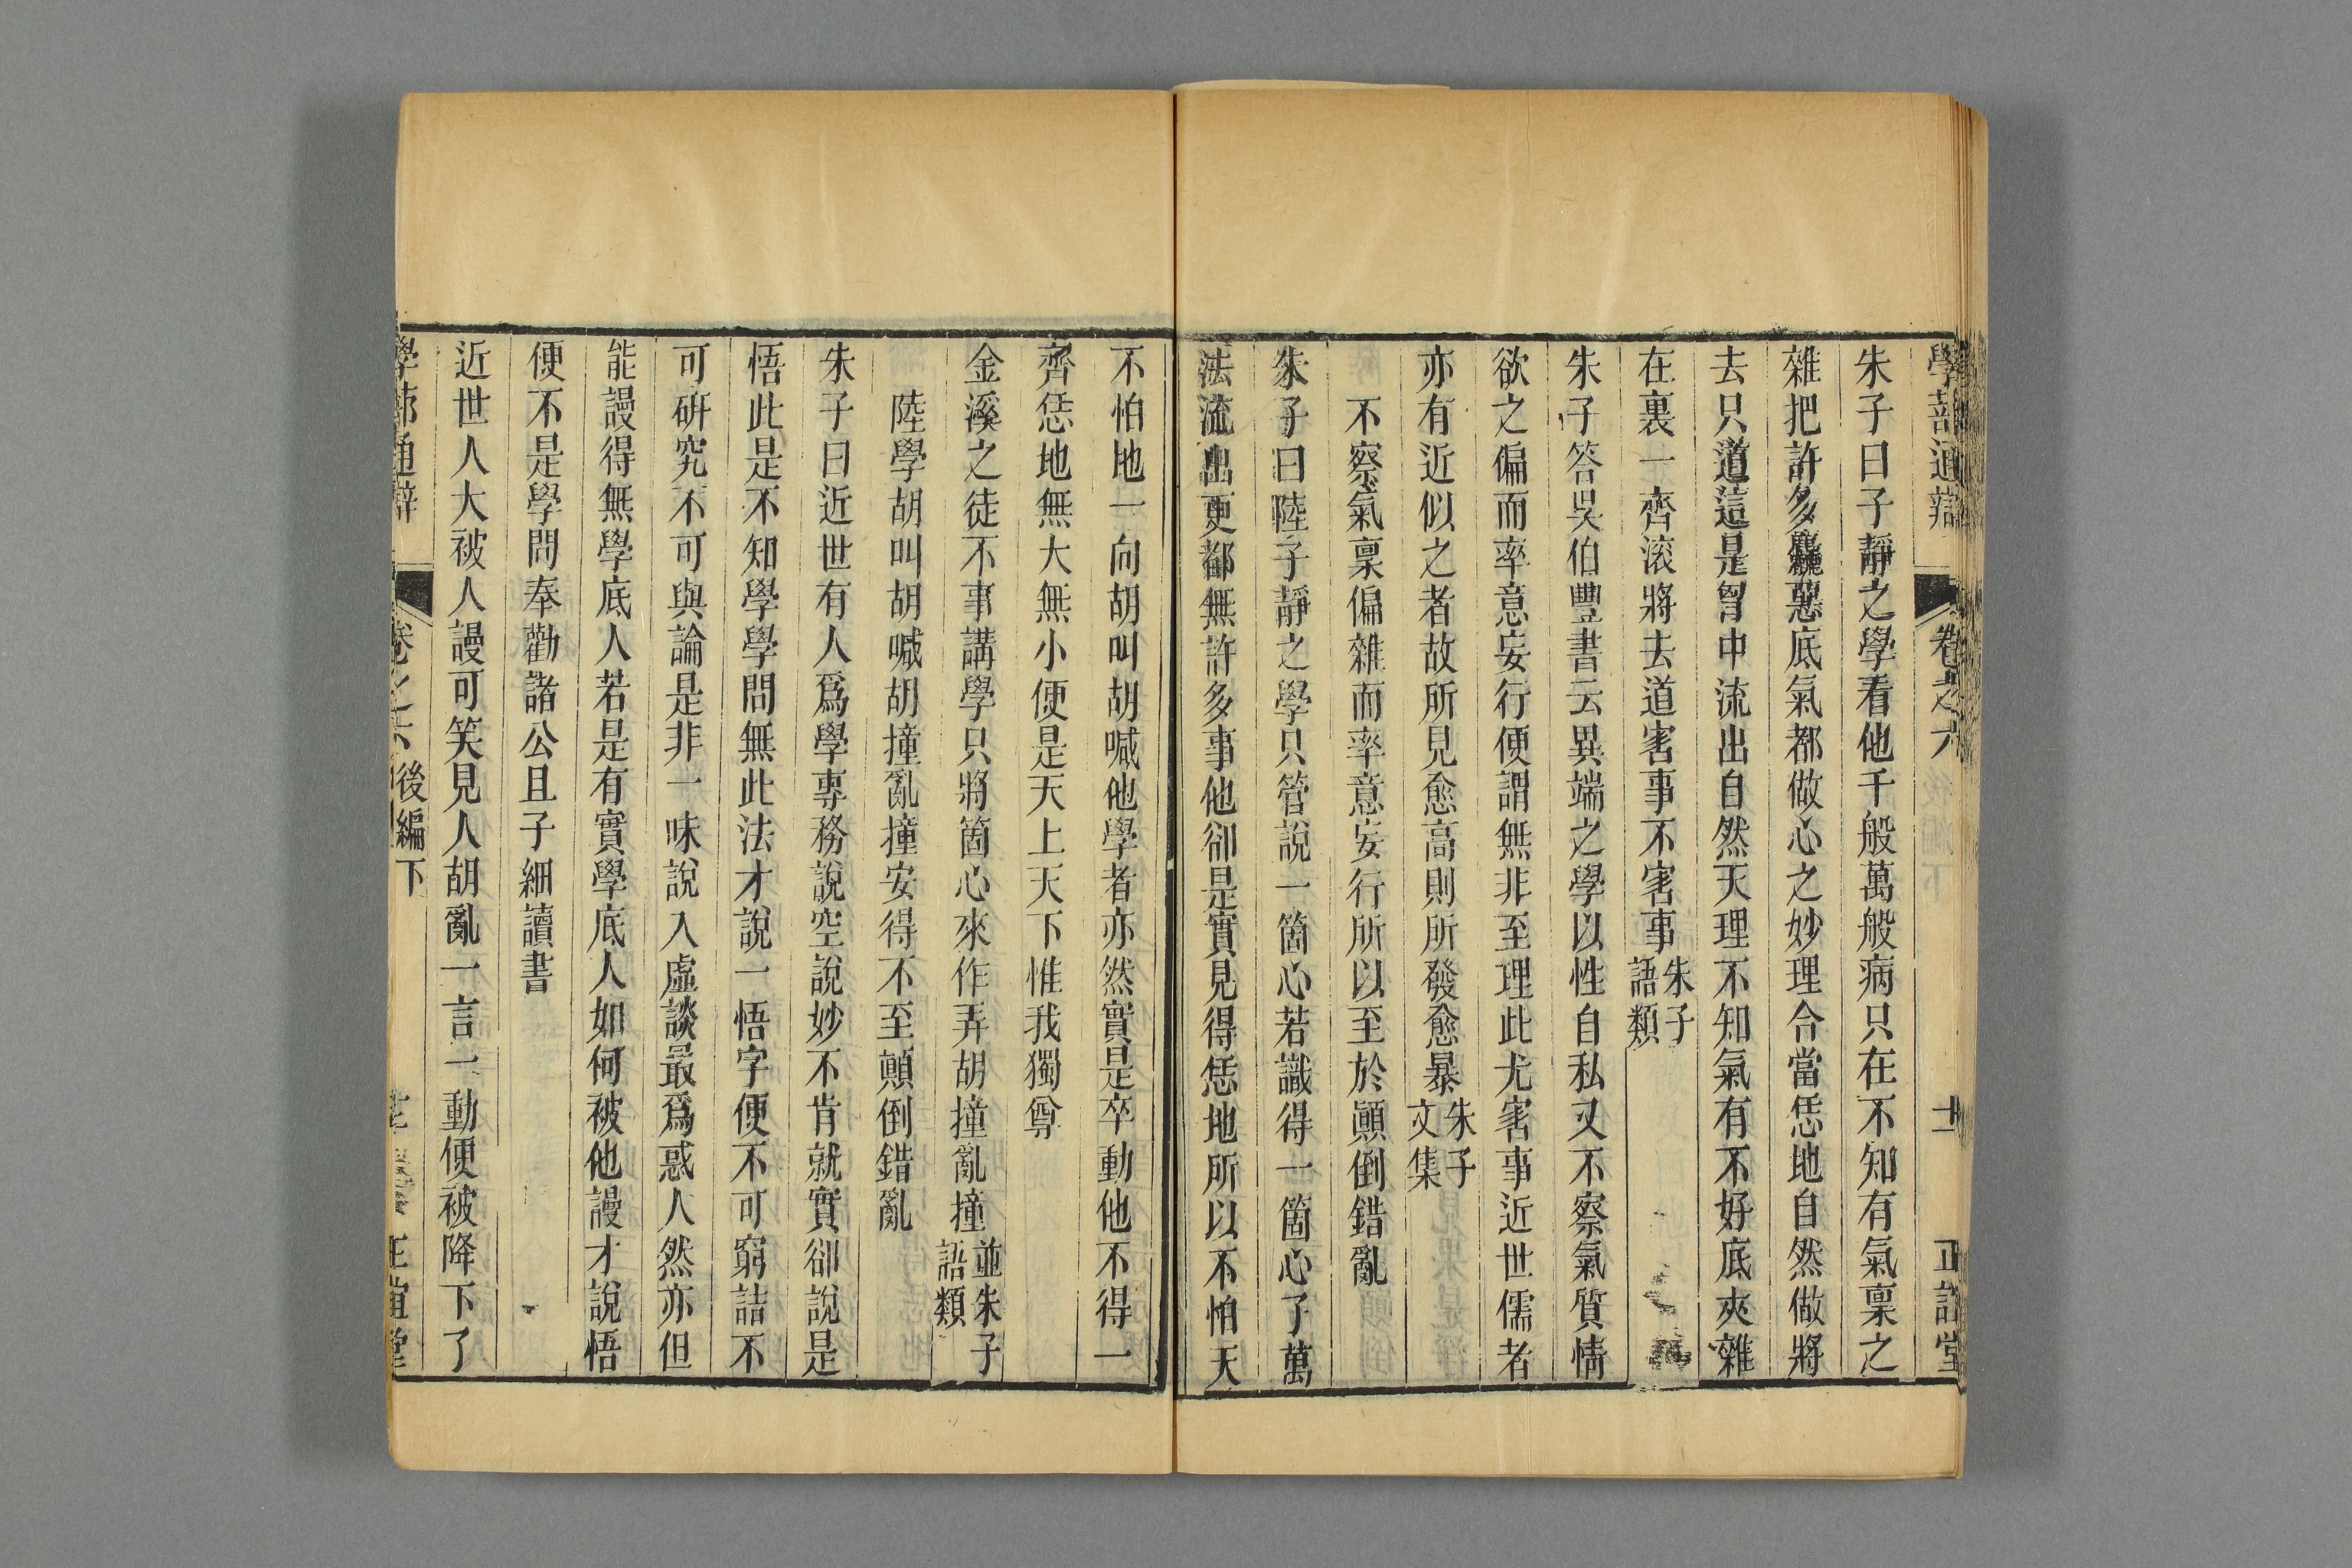 學蔀通辯 卷之六 十 正誼堂
朱子曰子靜之學看他千般萬般病只在不知有氣稟之
雜把許多麤惡底氣都做心之妙理合當恁地自然做將
去只道這是胷中流出自然天理不知氣有不好底夾雜
在裏一齊滚將去道害事不害事朱子語類
朱子答吳伯豐書云異端之學以性自私又不察氣質情
欲之偏而率意妄行便謂無非至理此尤害事近世儒者
亦有近似之者故所見愈高則所發愈暴朱子文集
不察氣稟偏雜而率意妄行所以至於顚倒錯亂
朱子曰陸子靜之學只管說一箇心若識得一箇心了萬
法流出更都無許多事他卻是實見得恁地所以不怕天
不怕地一向胡叫胡喊他學者亦然實是卒動他不得一
齊恁地無大無小便是天上天下惟我獨尊
金溪之徒不事講學只將箇心來作弄胡撞亂撞並朱子語類
陸學胡叫胡喊胡撞亂撞安得不至顚倒錯亂
朱子曰近世有人爲學專務說空說妙不肯就實卻說是
悟此是不知學學問無此法才說一悟字便不可窮詰不
可硏究不可與論是非一味說入虛談最爲惑人然亦但
能謾得無學底人若是有實學底人如何被他謾才說悟
便不是學問奉勸諸公且子細讀書
近世人大被人謾可笑見人胡亂一言一動便被降下了
學蔀通辯 卷之六 後編下 正誼堂